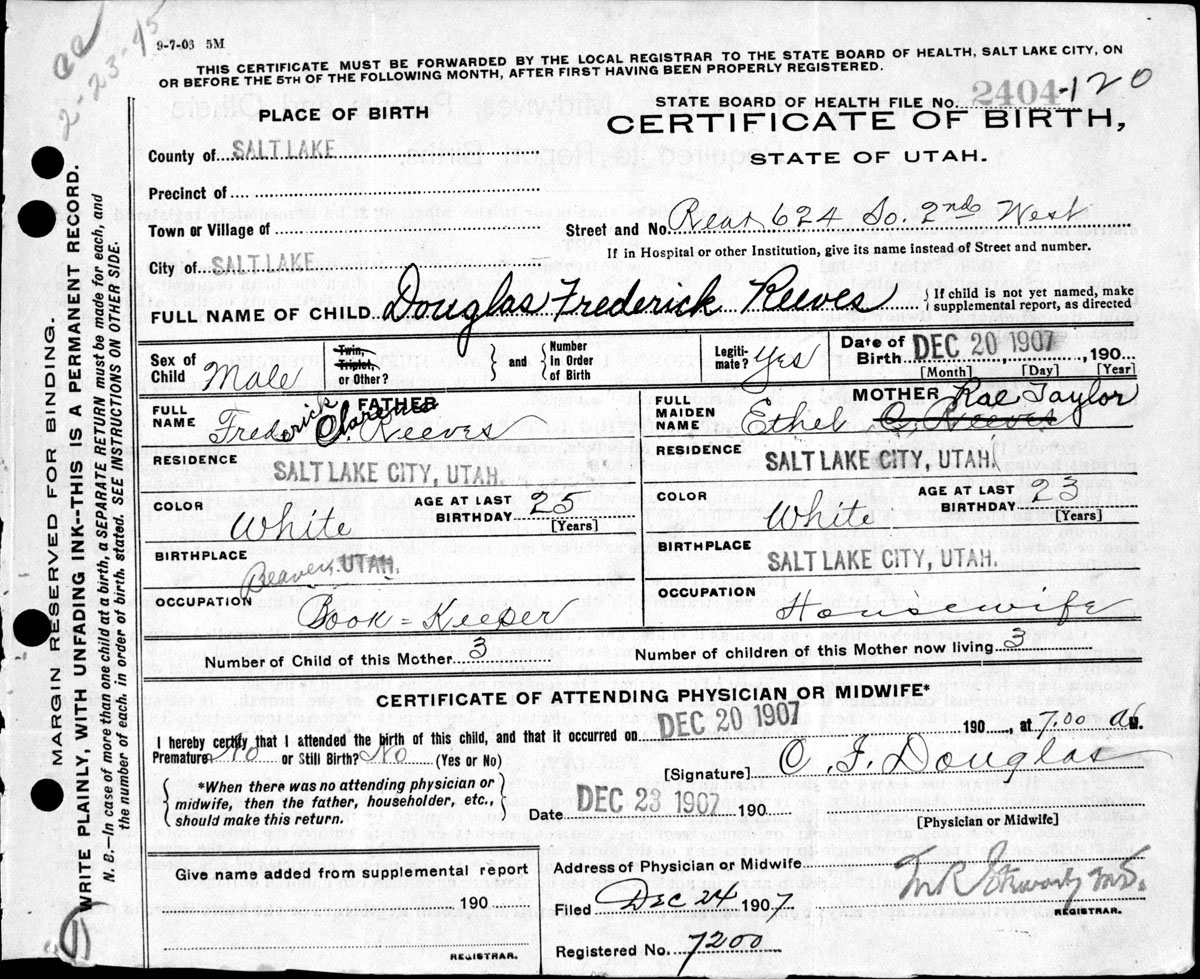 2-23-45
9-7-03 5M
THIS CERTIFICATE MUST BE FORWARDED BY THE LOCAL REGISTRAR TO THE STATE BOARD OF HEALTH, SALT LAKE CITY, ON
OR BEFORE THE 5TH OF THE FOLLOWING MONTH, AFTER FIRST HAVING BEEN PROPERLY REGISTERED.
STATE BOARD OF HEALTH FILE No. 2404-120
PLACE OF BIRTH
CERTIFICATE OF BIRTH,
STATE OF UTAH.
County of SALT LAKE
Precinct of
Town or Village of
Street and No. Rear 624 So. 2nd West
If in Hospital or other Institution, give its name instead of Street and number.
City of SALT LAKE
FULL NAME OF CHILD Douglas Frederick Reeves { If child is not yet named, make supplemental report, as directed
Sex of Child Male
Twin, Triplet, or Other?
and
Number in Order of Birth
Legiti-mate? Yes
Date of Birth DEC 20 1907, 190
[Month] [Day] [Year]
FATHER
FULL NAME Frederick Clarence Reeves
RESIDENCE SALT LAKE CITY, UTAH.
COLOR White
AGE AT LAST BIRTHDAY 25 [Years]
BIRTHPLACE Beaver, UTAH.
OCCUPATION Book=Keeper
MOTHER
FULL MAIDEN NAME Ethel C. Reeves Rae Taylor
RESIDENCE SALT LAKE CITY, UTAH.
COLOR White
AGE AT LAST BIRTHDAY 23 [Years]
BIRTHPLACE SALT LAKE CITY, UTAH.
OCCUPATION Housewife
Number of Child of this Mother 3
Number of children of this Mother now living 3
CERTIFICATE OF ATTENDING PHYSICIAN OR MIDWIFE*
I hereby certify that I attended the birth of this child, and that it occurred on DEC 20 1907 190, at 7.00 a M.
Premature No or Still Birth? No (Yes or No)
[Signature] C. F. Douglas
*When there was no attending physician or
midwife, then the father, householder, etc.,
should make this return.
Date DEC 23 1907 190
[Physician or Midwife]
Give name added from supplemental report
190
REGISTRAR.
Address of Physician or Midwife
Filed Dec 24 1907
REGISTRAR.
Registered No. 7200
MARGIN RESERVED FOR BINDING.
WRITE PLAINLY, WITH UNFADING INK--THIS IS A PERMANENT RECORD.
N. B.--In case of more than one child at a birth, a SEPARATE RETURN must be made for each, and
the number of each, in order of birth, stated. SEE INSTRUCTIONS ON OTHER SIDE.